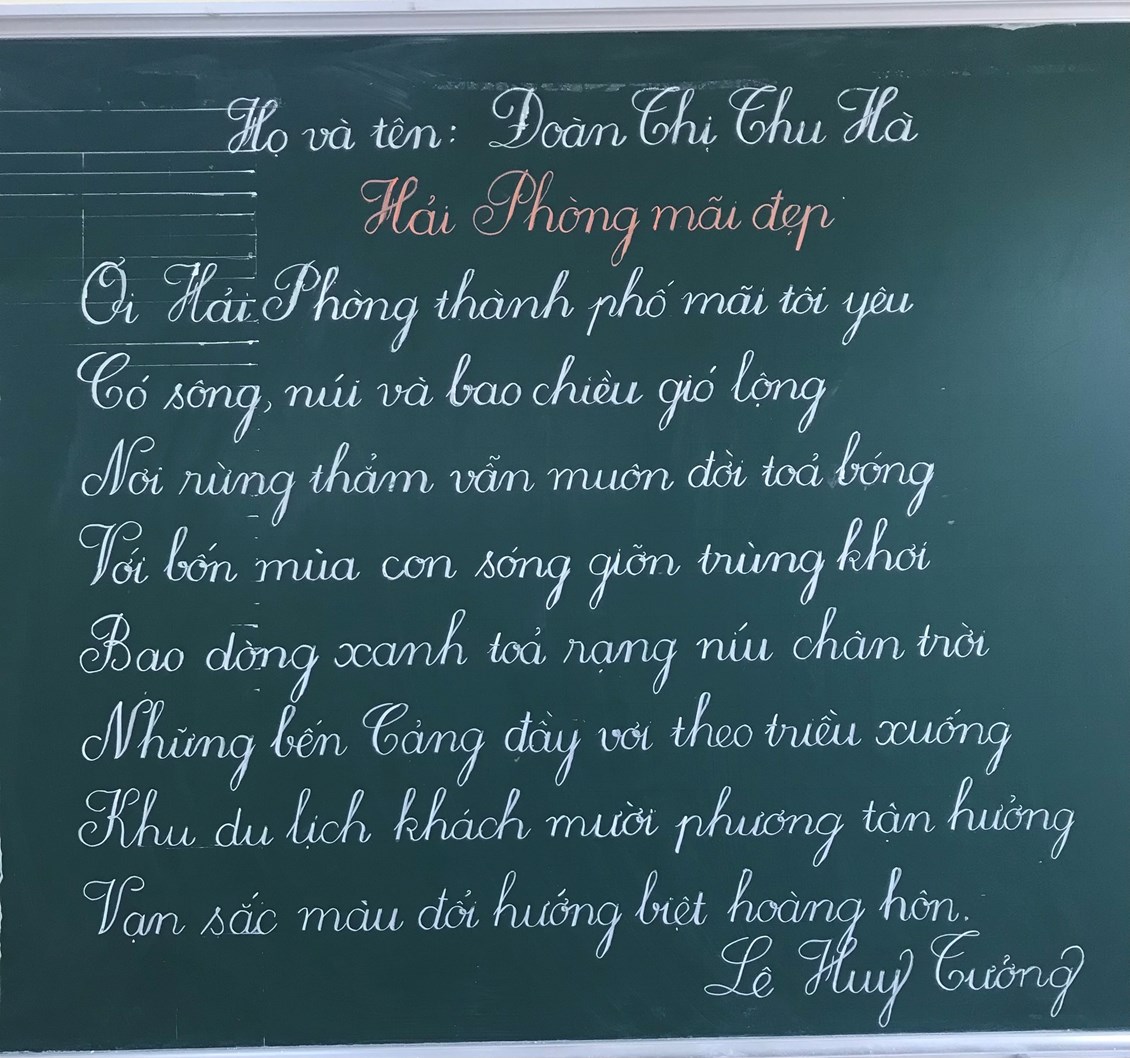 Họ và tên: Đoàn Thị Thu Hà
Hải Phòng mãi đẹp
Ơi Hải Phòng thành phố mãi tôi yêu
Có sông, núi và bao chiều gió lộng
Nơi rừng thảm vẫn muôn đời toả bóng
Với bốn mùa con sóng giỡn trùng khơi
Bao dòng xanh toả rạng níu chân trời
Những bến Cảng đầy vơi theo triều xuống
Khu du lịch khách mười phương tận hưởng
Vạn sắc màu đổi hướng biệt hoàng hôn.
Lê Huy Tưởng